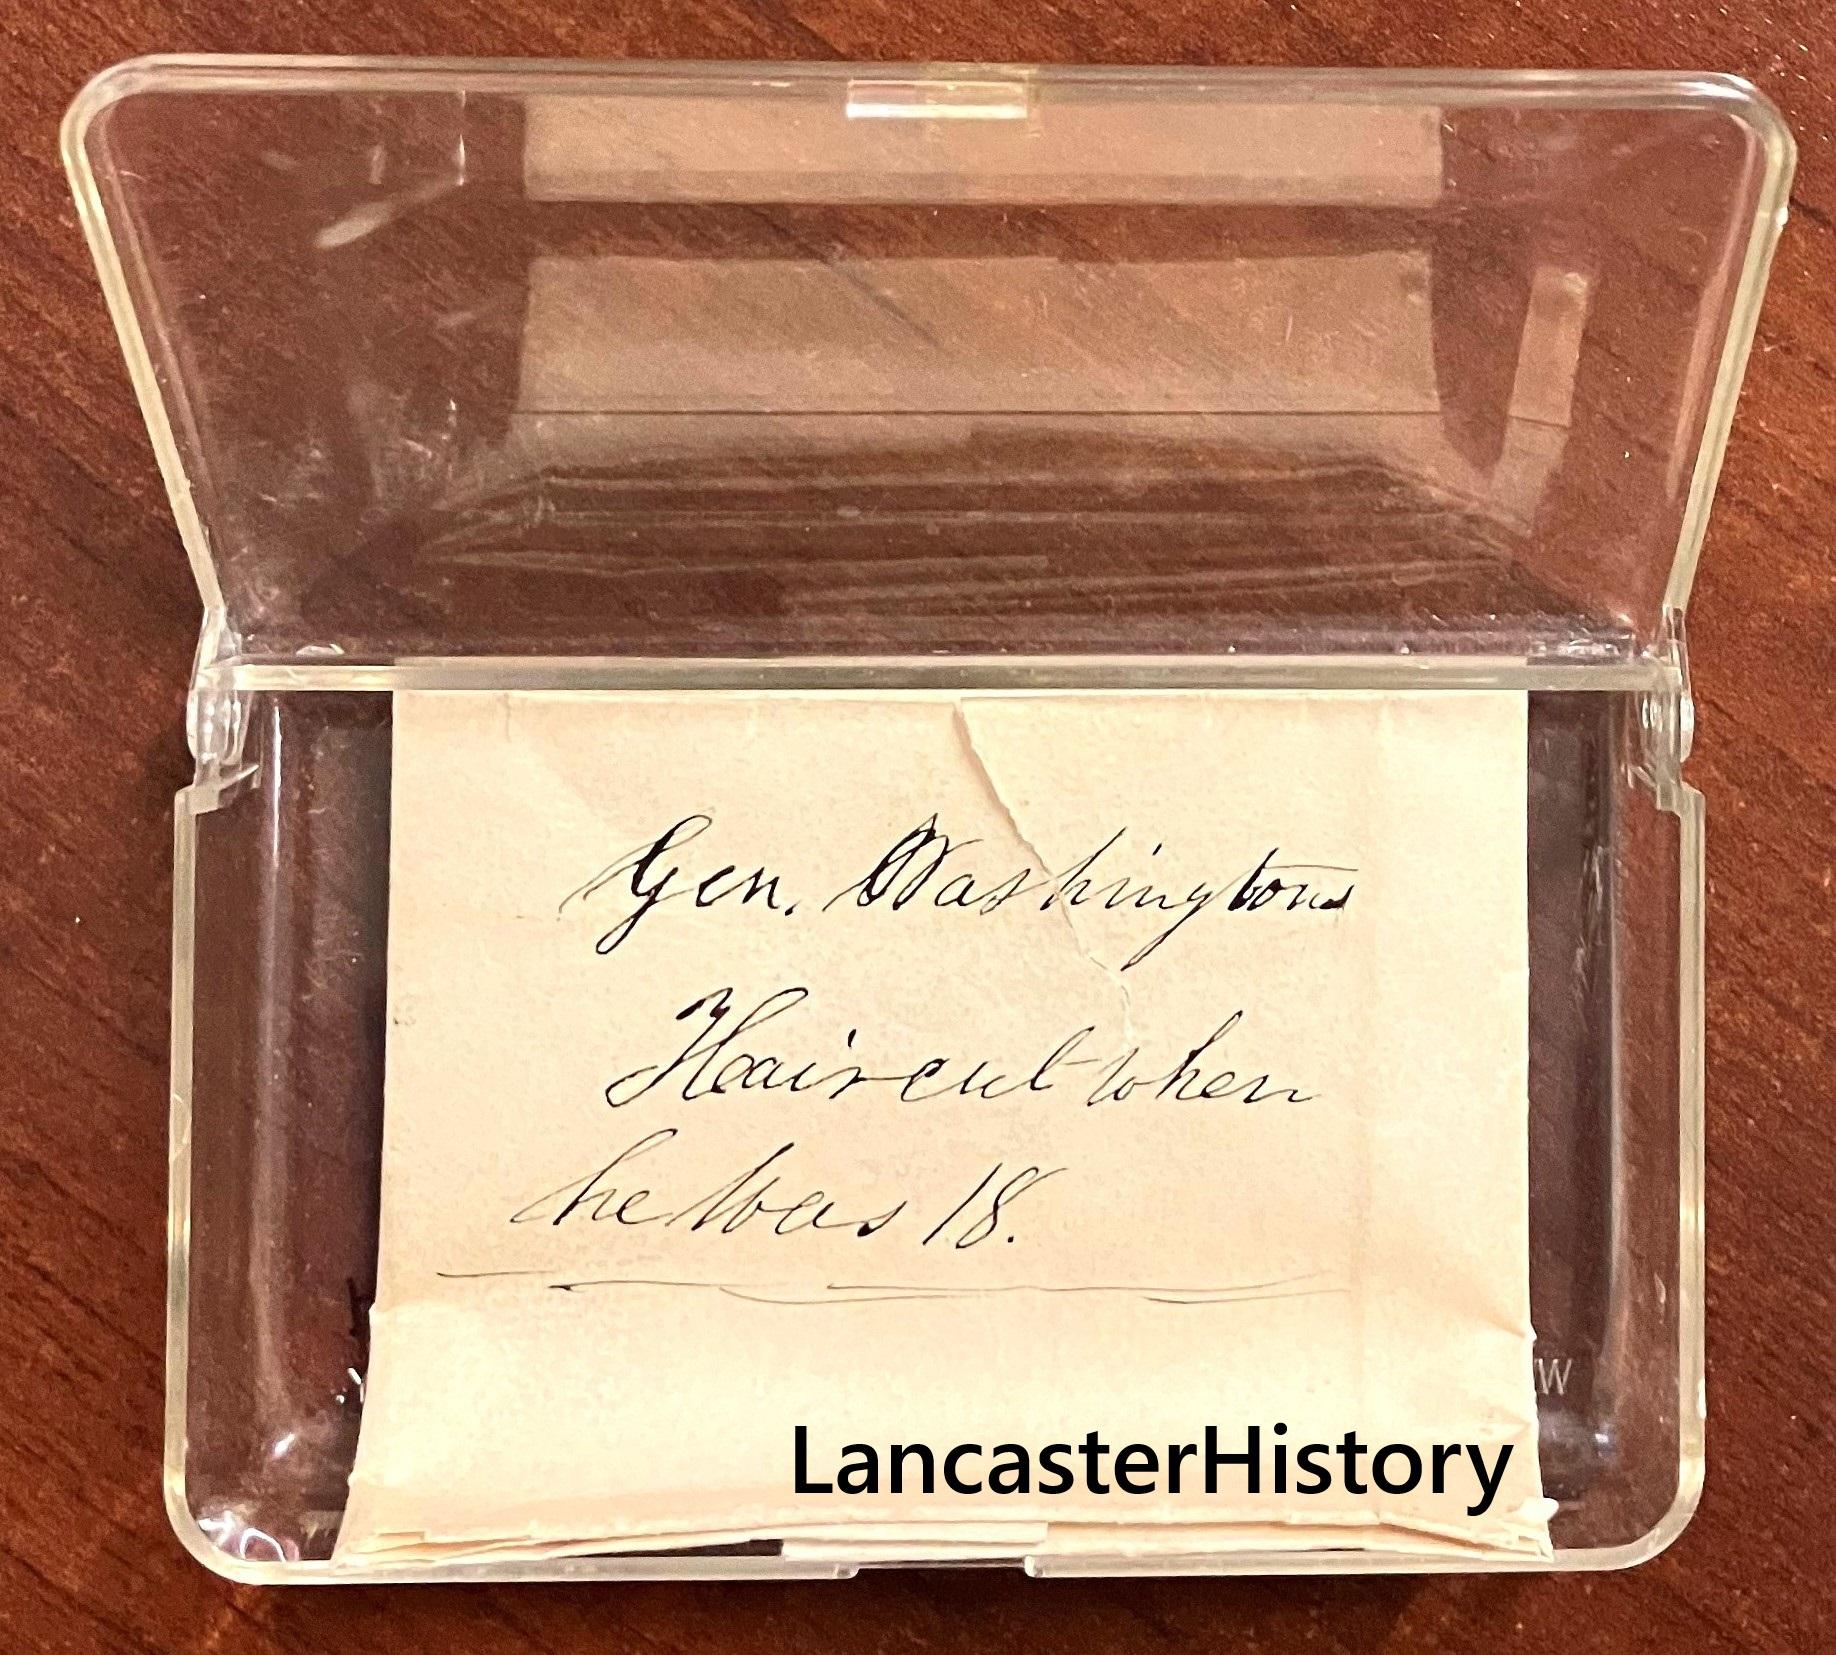 Gen. Washingtons
Hair cut when
he was 18.
LancasterHistory